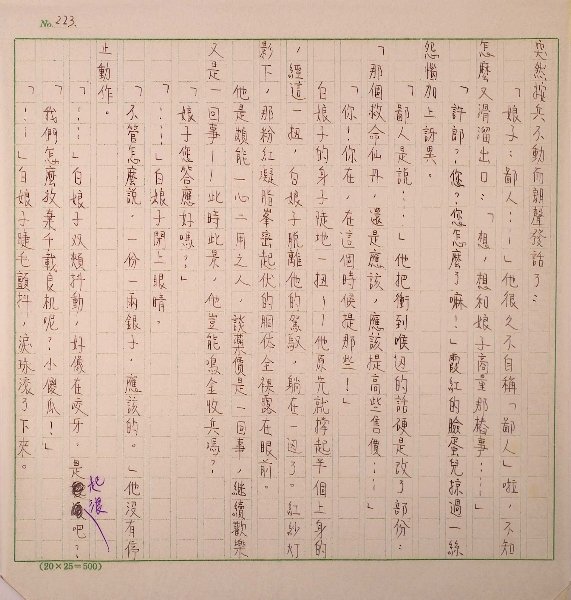 No. 223.
突然按兵不動而朗聲發話了:
「娘子:鄙人…」他很久不自稱「鄙人」啦,不知
怎麼又滑溜出口:「想,想和娘子商量那樁事……」
「許郎?您?您怎麼了嘛!」霞紅的臉蛋兒掠過一絲
怨惱加上訝異。
「鄙人是說……」他把衝到喉頭的話硬是改了部份:
「那個救命仙丹,還是應該,應該提高些售價……」
「你!你在,在這個時候提那些!」
白娘子的身子陡地一扭——他原先就撐起半個上身的
,經這一扭,白娘子脫離他的駕馭,躺在一邊了。紅紗灯
影下,那粉紅凝脂峯巒起伏的胴体全裸露在眼前。
他是頗能一心二用之人,談藥價是一回事,繼續歡樂
又是一回事——此時此景,他豈能鳴金收兵嗎?
「娘子您答應好嗎?」
「……」白娘子閉上眼睛。
「不管怎麼說,一份一兩銀子,應該的。」他沒有停
止動作。
「……」白娘子双頰抖動,好像在咬牙。是起浪吧?
「我們怎麼放棄千載良机呢?小傻瓜!」
「……」白娘子睫毛顫抖,淚珠滾了下來。
(20×25=500)